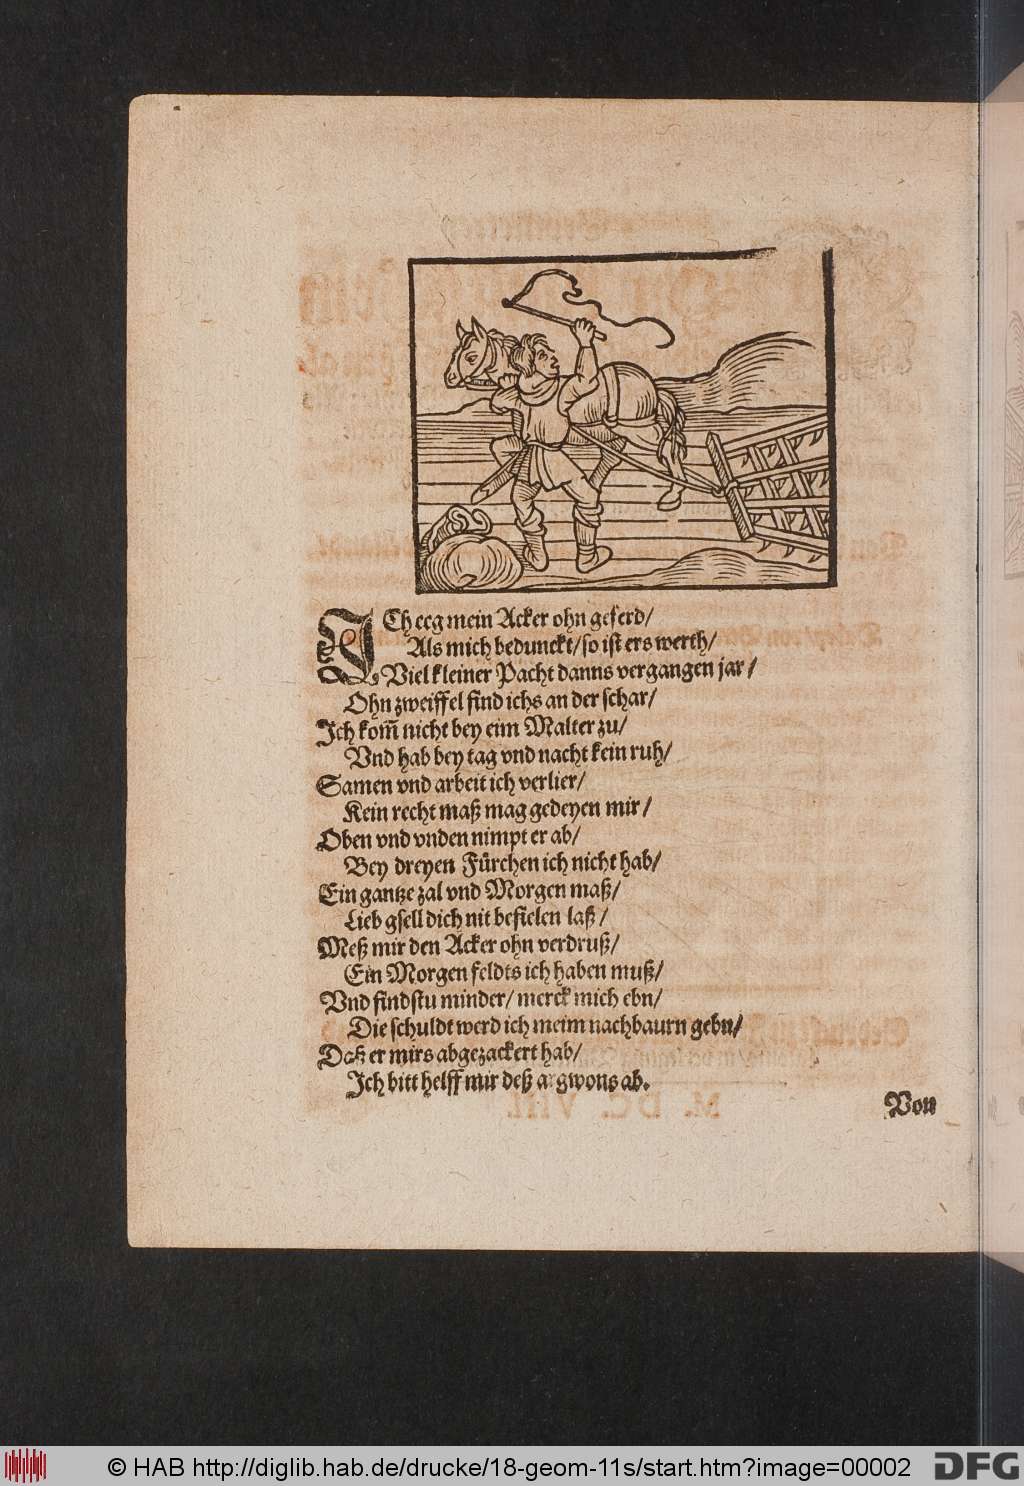 ICh ecg mein Acker ohn geferd/
Als mich bedunckt/ so ist ers werth/
Viel kleiner Pacht danns vergangen jar/
Ohn zweiffel find ichs an der schar/
Ich kom̃ nicht bey eim Malter zu/
Vnd hab bey tag vnd nacht kein ruh/
Samen vnd arbeit ich verlier/
Kein recht maß mag gedeyen mir/
Oben vnd vnden nimpt er ab/
Bey dreyen Fürchen ich nicht hab/
Ein gantze zal vnd Morgen maß/
Lieb gsell dich nit befielen laß/
Meß mir den Acker ohn verdruß/
Ein Morgen feldts ich haben muß/
Vnd findstu minder/ merck mich ebn/
Die schuldt werd ich meim nachbaurn gebn/
Daß er mirs abgezackert hab/
Ich bitt helff mir deß argwons ab.
Von
© HAB http://diglib.hab.de/drucke/18-geom-11s/start.htm?image=00002
DFG